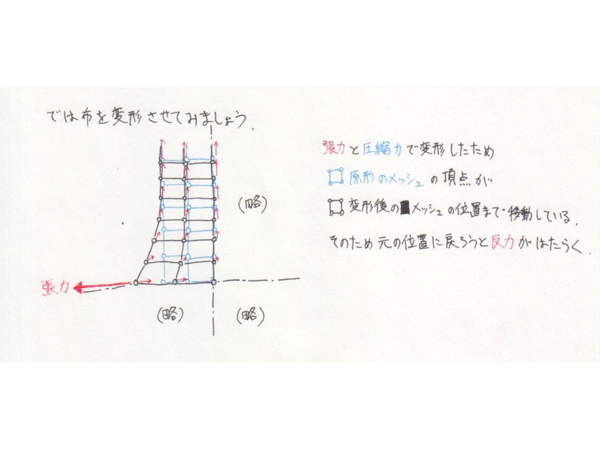 では布を変形させてみましょう.
張力と圧縮力で変形したため
原形のメッシュの頂点が
変形後のメッシュの位置まで移動している.
そのため元の位置に戻ろうと反力がはたらく.
(略)
張力
(略)
(略)